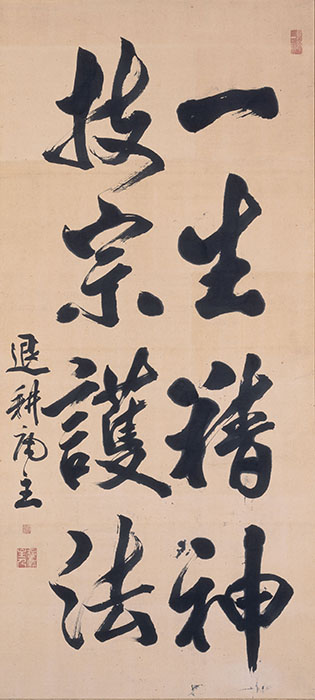 一生精神
扶宗護法
退耕庵主